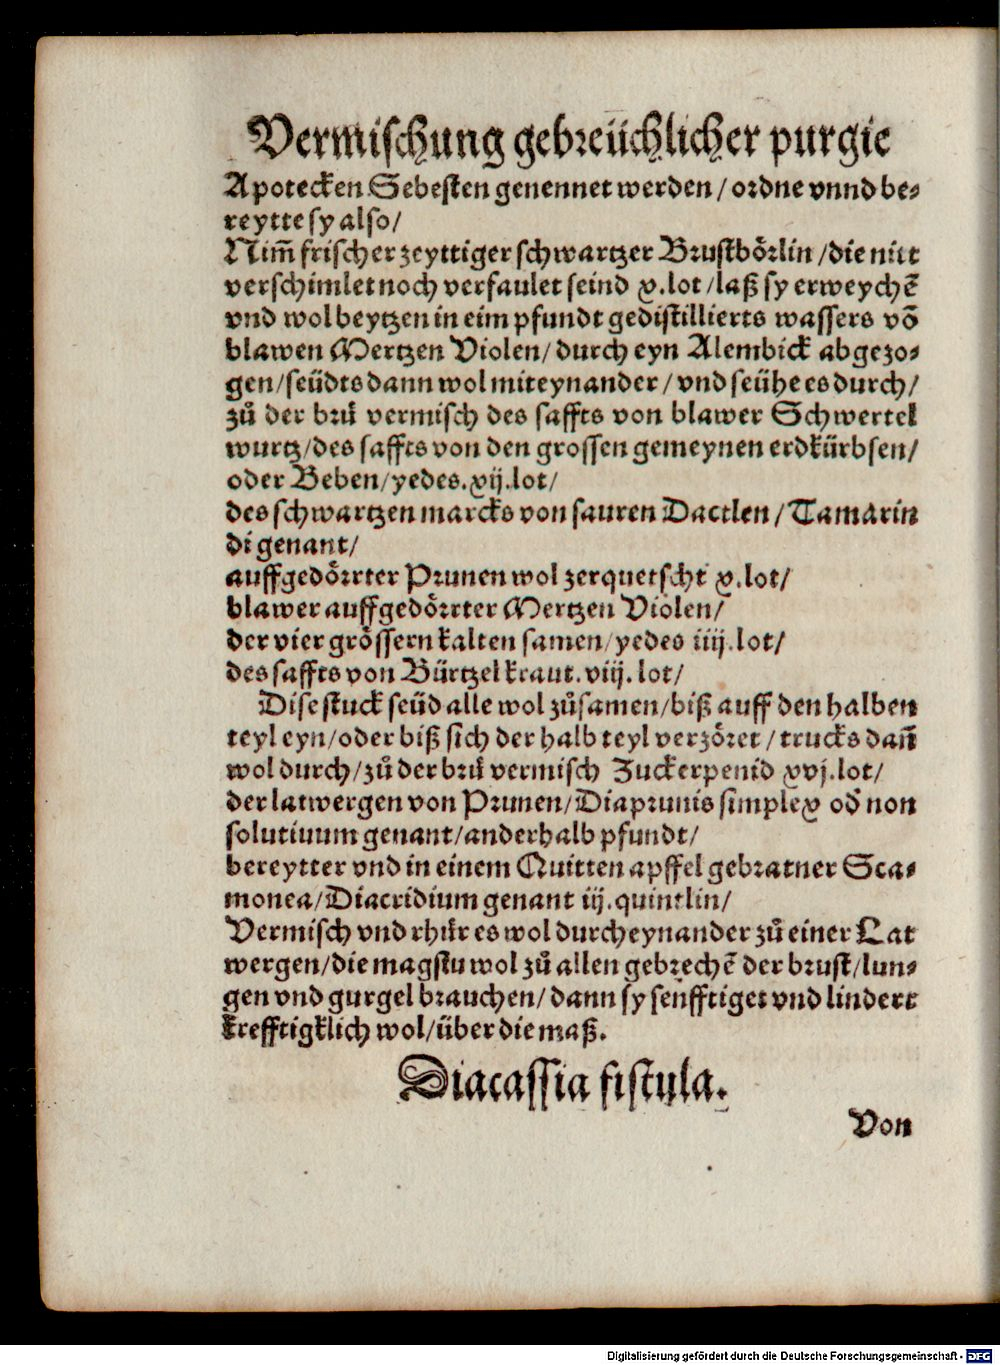 Vermischung gebreüchlicher purgie
Apotecken Sebesten genennet werden / ordne vnnd be⸗
reytte sy also /
Nim̃ frischer zeyttiger schwartzer Brustbörlin / die nitt
verschimlet noch verfaulet seind x. lot / laß sy erweychẽ
vnd wol beytzen in eim pfundt gedistillierts wassers võ
blawen Mertzen Violen / durch eyn Alembick abgezo⸗
gen / seüdts dann wol miteynander / vnd seühe es durch /
zů der brů vermisch des saffts von blawer Schwertel
wurtz / des saffts von den grossen gemeynen erdkürbsen /
oder Beben / yedes. xij. lot /
des schwartzen marcks von sauren Dactlen / Tamarin
di genant /
auffgedörrter Prunen wol zerquetscht x. lot /
blawer auffgedörrter Mertzen Violen /
der vier grössern kalten samen / yedes iiij. lot /
des saffts von Bürtzel kraut. viij. lot /
Dise stuck seüd alle wol zůsamen / biß auff den halben
teyl eyn / oder biß sich der halb teyl verzöret / trucks dañ
wol durch / zů der brů vermisch Zuckerpenid xvj. lot /
der latwergen von Prunen / Diaprunis simplex od̛ non
solutiuum genant / anderhalb pfundt /
bereytter vnd in einem Quitten apffel gebratner Sca⸗
monea / Diacridium genant iij. quintlin /
Vermisch vnd rhůr es wol durcheynander zů einer Lat
wergen / die magstu wol zů allen gebrechẽ der brust / lun⸗
gen vnd gurgel brauchen / dann sy senfftiget vnd lindert
krefftigklich wol / über die maß.
Diacassia fistula.
Von
Digitalisierung gefördert durch die Deutsche Forschungsgemeinschaft - DFG